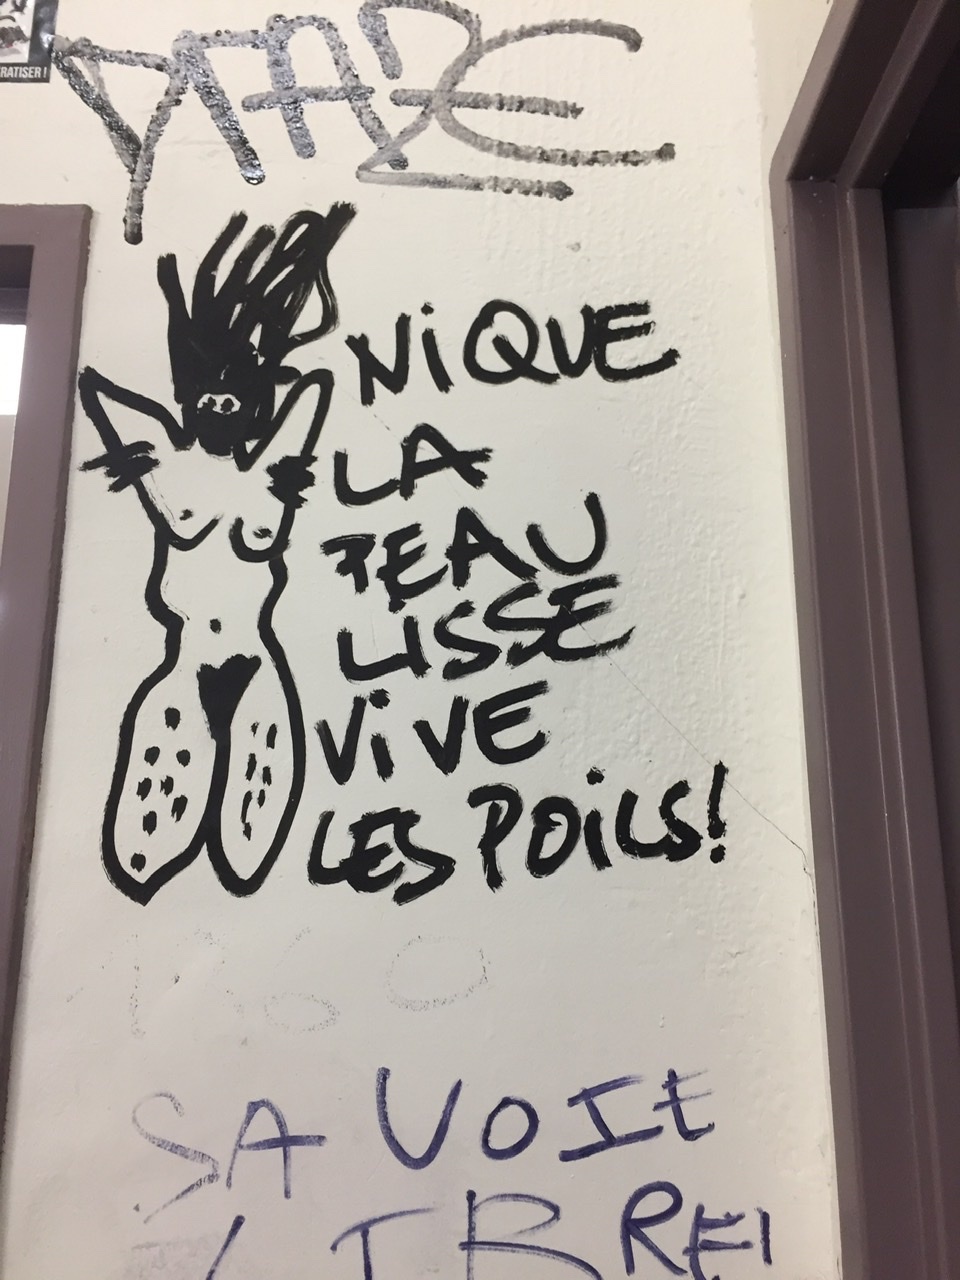 RATISER !
NiQUE
LA
PEAU
LISSE
ViVE
LES POiLS!
SAVOIE
LIBRE!